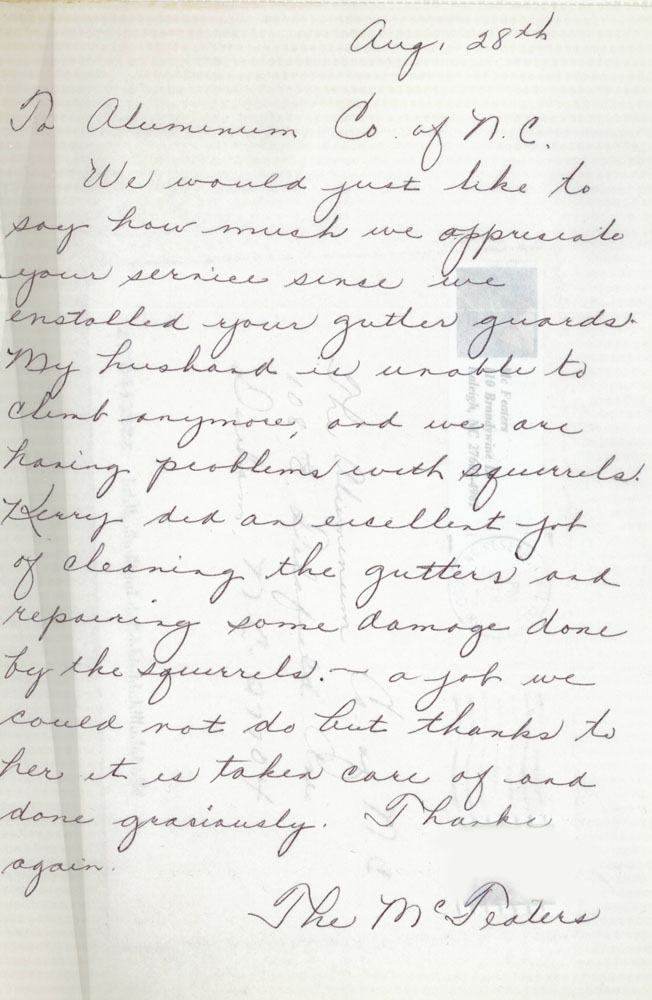 Aug. 28th
To Aluminum Co. of N.C.
We would just like to
say how much we appreciate
your service since we
installed your gutter guards.
My husband is unable to
climb anymore, and we are
having problems with squirrels.
Kerry did an excellent job
of cleaning the gutters and
repairing some damage done
by the squirrels. — a job we
could not do but thanks to
her it is taken care of and
done graciously. Thanks
again.
The McFeaters